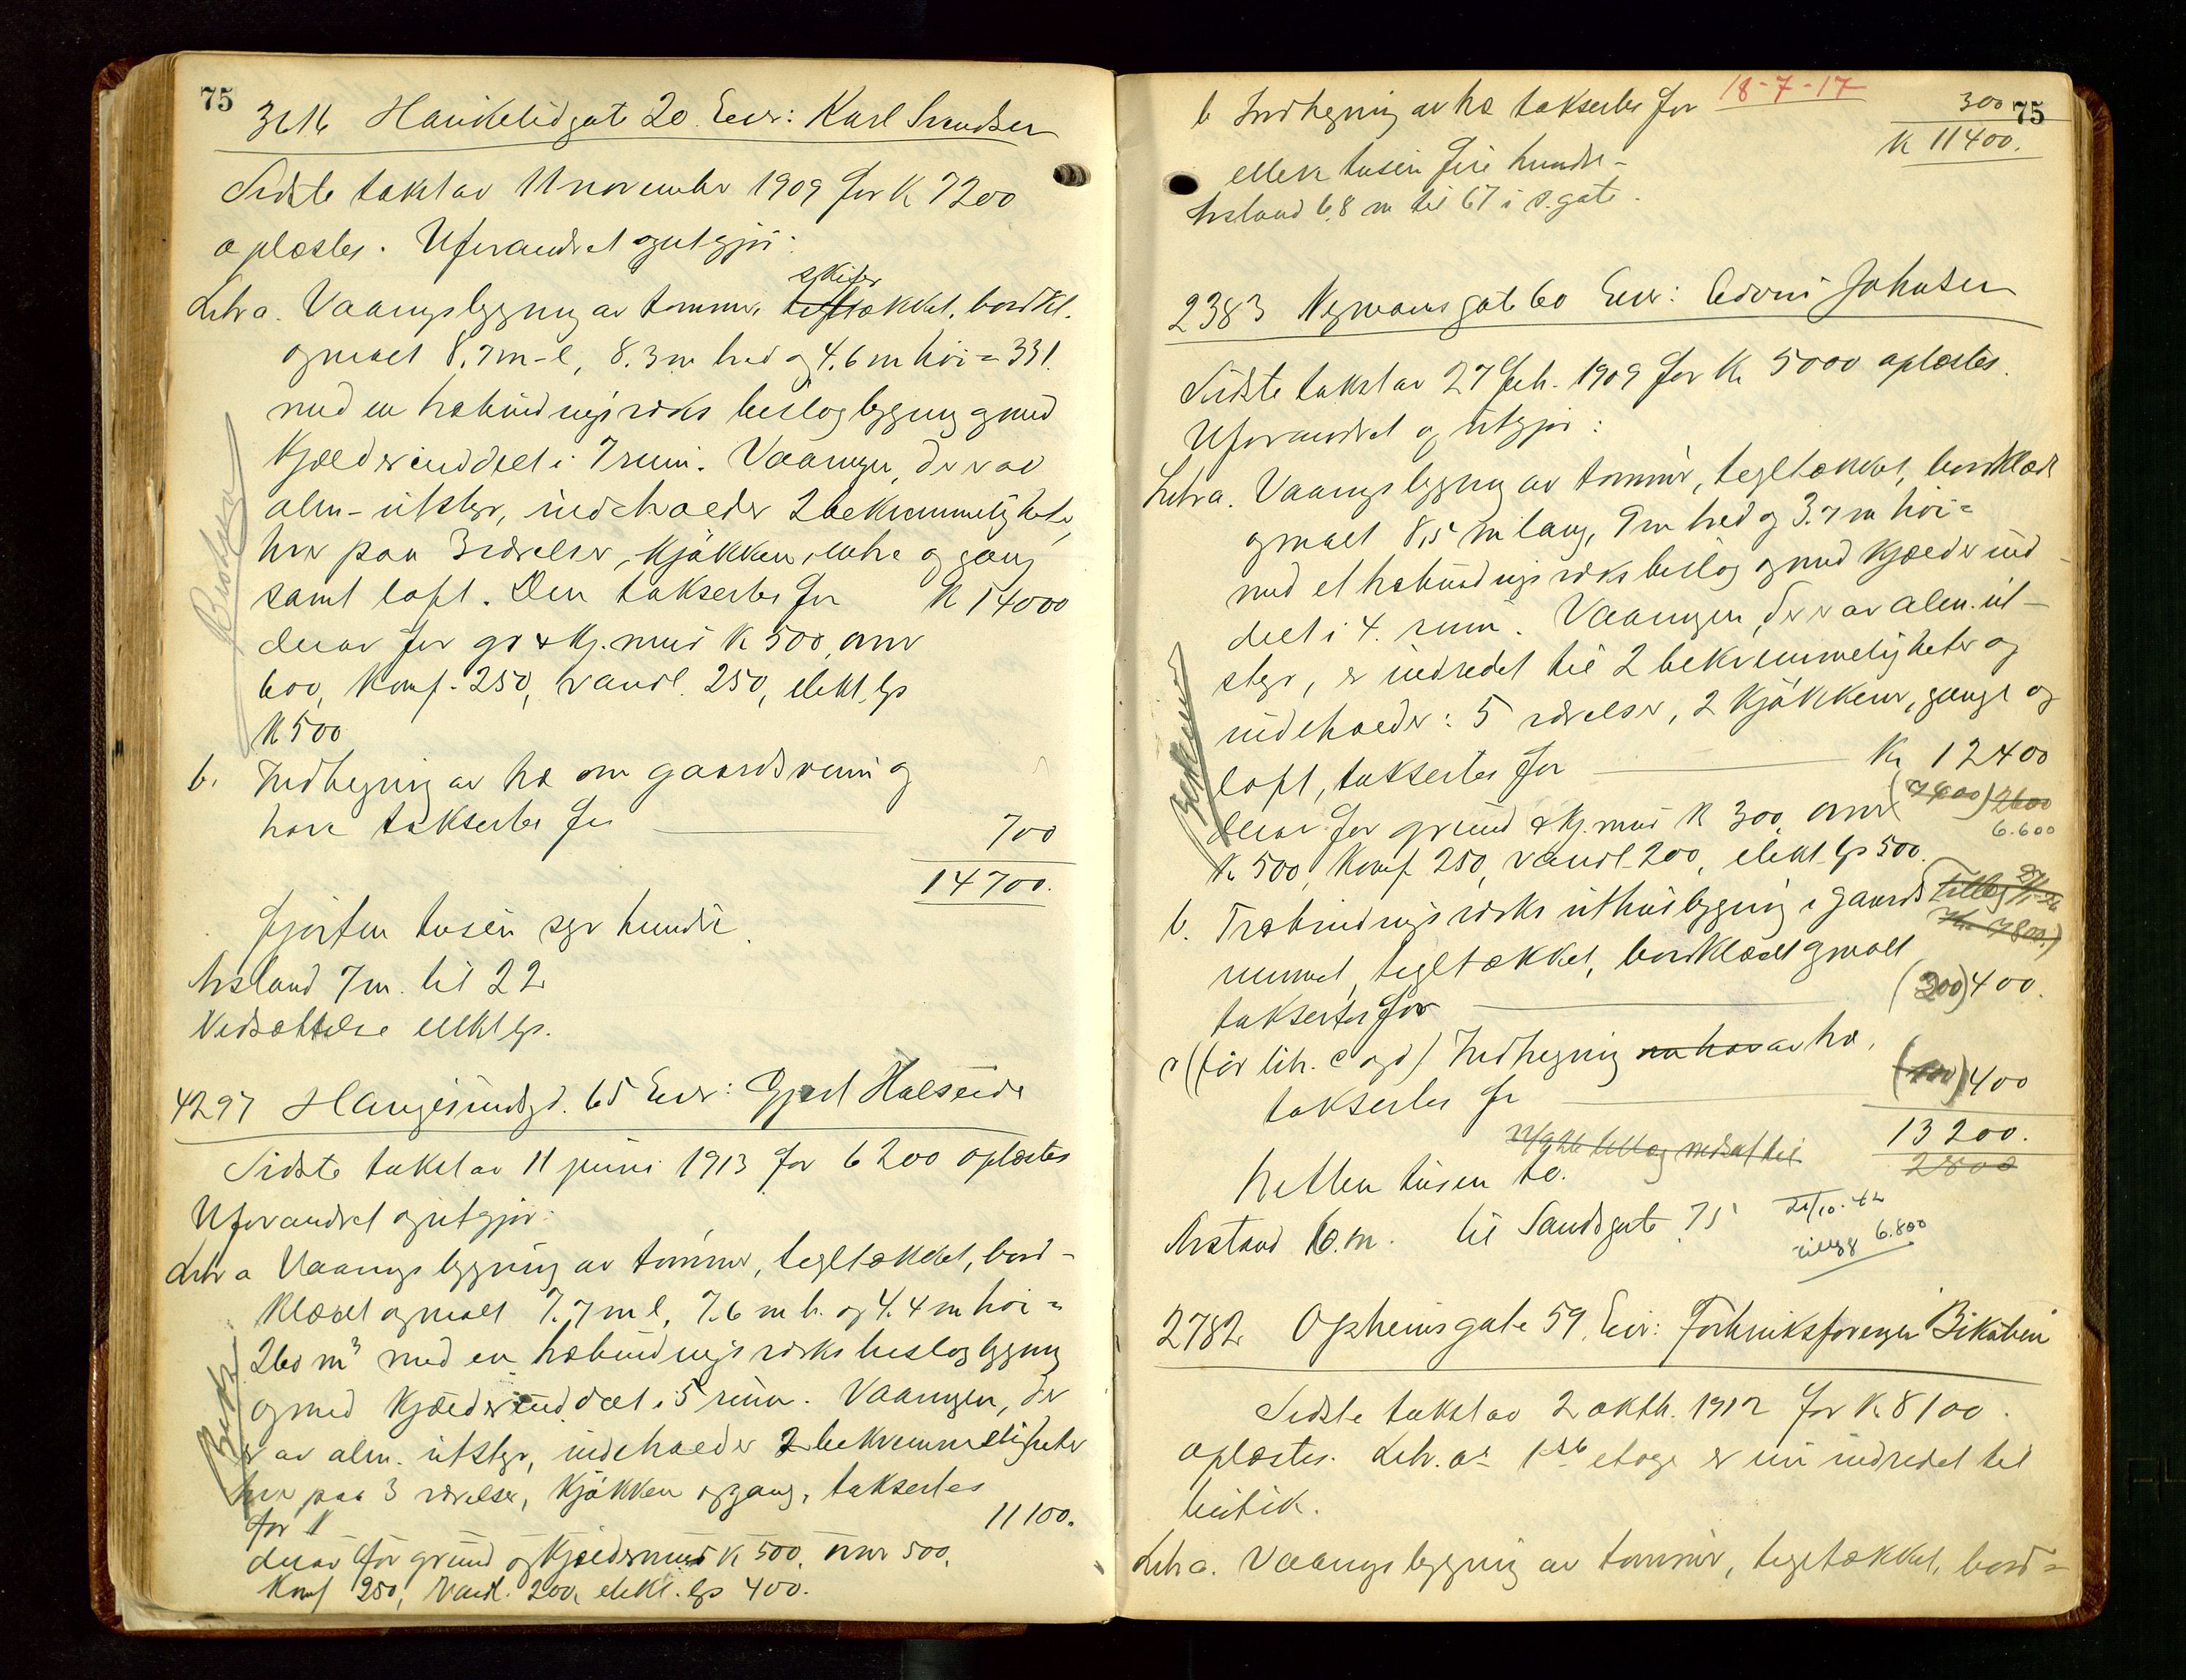 75
3616 Haukelidgate 20 Eier: Karl Svendsen
Sidste takst av 11 november 1909 for K 7200
oplæstes. Uforandret og utgjør:
skifer
Litra. Vaaningsbygning av tømmer, tegltækket, bordkl.
og malt 8.7 m l, 8.3 m bred og 4.6 m høi = 331
med en træbindingsværks beslagbygning og med
kjælder inddelt i 7 rum. Vaaningen, der er av
alm. utstyr, indeholder 2 bekvemmeligheter,
hver paa 3 værelser, kjøkken, entre og gang
samt loft. Den taksertes for K 14000
derav for gr & kj. mur K 500, ovner
600, komf. 250, vandl. 250, elekt. lys
K 500
b. Indhegning av træ om gaardsrum og
have taksertes for 700
14700.
fjorten tusen syv hundre.
Avstand 7 m. til 22
Nedsættelse elekt lys.
4297 Haugesundsgd. 65 Eier: Gjert Halseide
Sidste takst av 11 juni 1913 for 6200 oplæstes
Uforandret og utgjør:
Litr a Vaaningsbygning av tømmer, tegltækket, bord-
klædt og malt 7.7 m l, 7.6 m b. og 4.4 m høi =
260 m³ med en træbindingsværks beslagbygning
og med kjælder inddelt i 5 rum. Vaaningen, der
er av alm. utstyr, indeholder 2 bekvemmeligheter
hver paa 3 værelser, kjøkken og gang, taksertes
for K 11100.
derav for grund og kjældermur K 500, ovner 500,
komf 250, vandl. 200, elekt. lys 400.
75
b Indhegning av træ taksertes for 18-7-17 300
K 11400.
elleve tusen fire hundre-
Avstand 6.8 m til 67 i s. gate.
2383 Nymansgate 60 Eier: Edvin Johnsen
Sidste takst av 27 feb. 1909 for Kr 5000 oplæstes.
Uforandret og utgjør:
Litra. Vaaningsbygning av tømmer, tegltækket, bordklædt
og malt 8,5 m lang, 9 m bred og 3.7 m høi =
med et træbindingsværks beslag og med kjælder ind-
delt i 4. rum. Vaaningen, der er av alm. ut-
styr, er indredet til 2 bekvemmeligheter og
indeholder: 5 værelser, 2 kjøkkener, gange og
loft, taksertes for Kr 12400
(7400) 2600
derav for grund & kj. mur K 300, ovner
6.600
K 500, komf 250, vandl. 200, elekt. lys 500.
b. Træbindingsværks uthusbygning i gaards
Tillæg
Kr. 7800.)
rummet, tegltækket, bordklædt og malt
taksertes for (200) 400.
c (før litr. c og d) Indhegning av træ,
taksertes for (100) 400
13200.
tillæg nedsat til 2800
tretten tusen to.
Avstand 6. m. til Sandsgate 75
21/10.42
tillegg 6.800
2782 Opheimsgate 59. Eier: Forbruksforeningen Bikuben
Sidste takst av 2 oktb. 1912 for K. 8100.
oplæstes. Litr. as 1ste etage er nu indredet til
butik.
Litra. Vaaningsbygning av tømmer, tegltækket, bord=